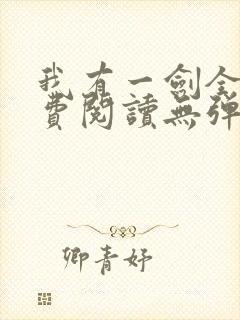 我有一劍全
費閱讀無彈
卿青妤